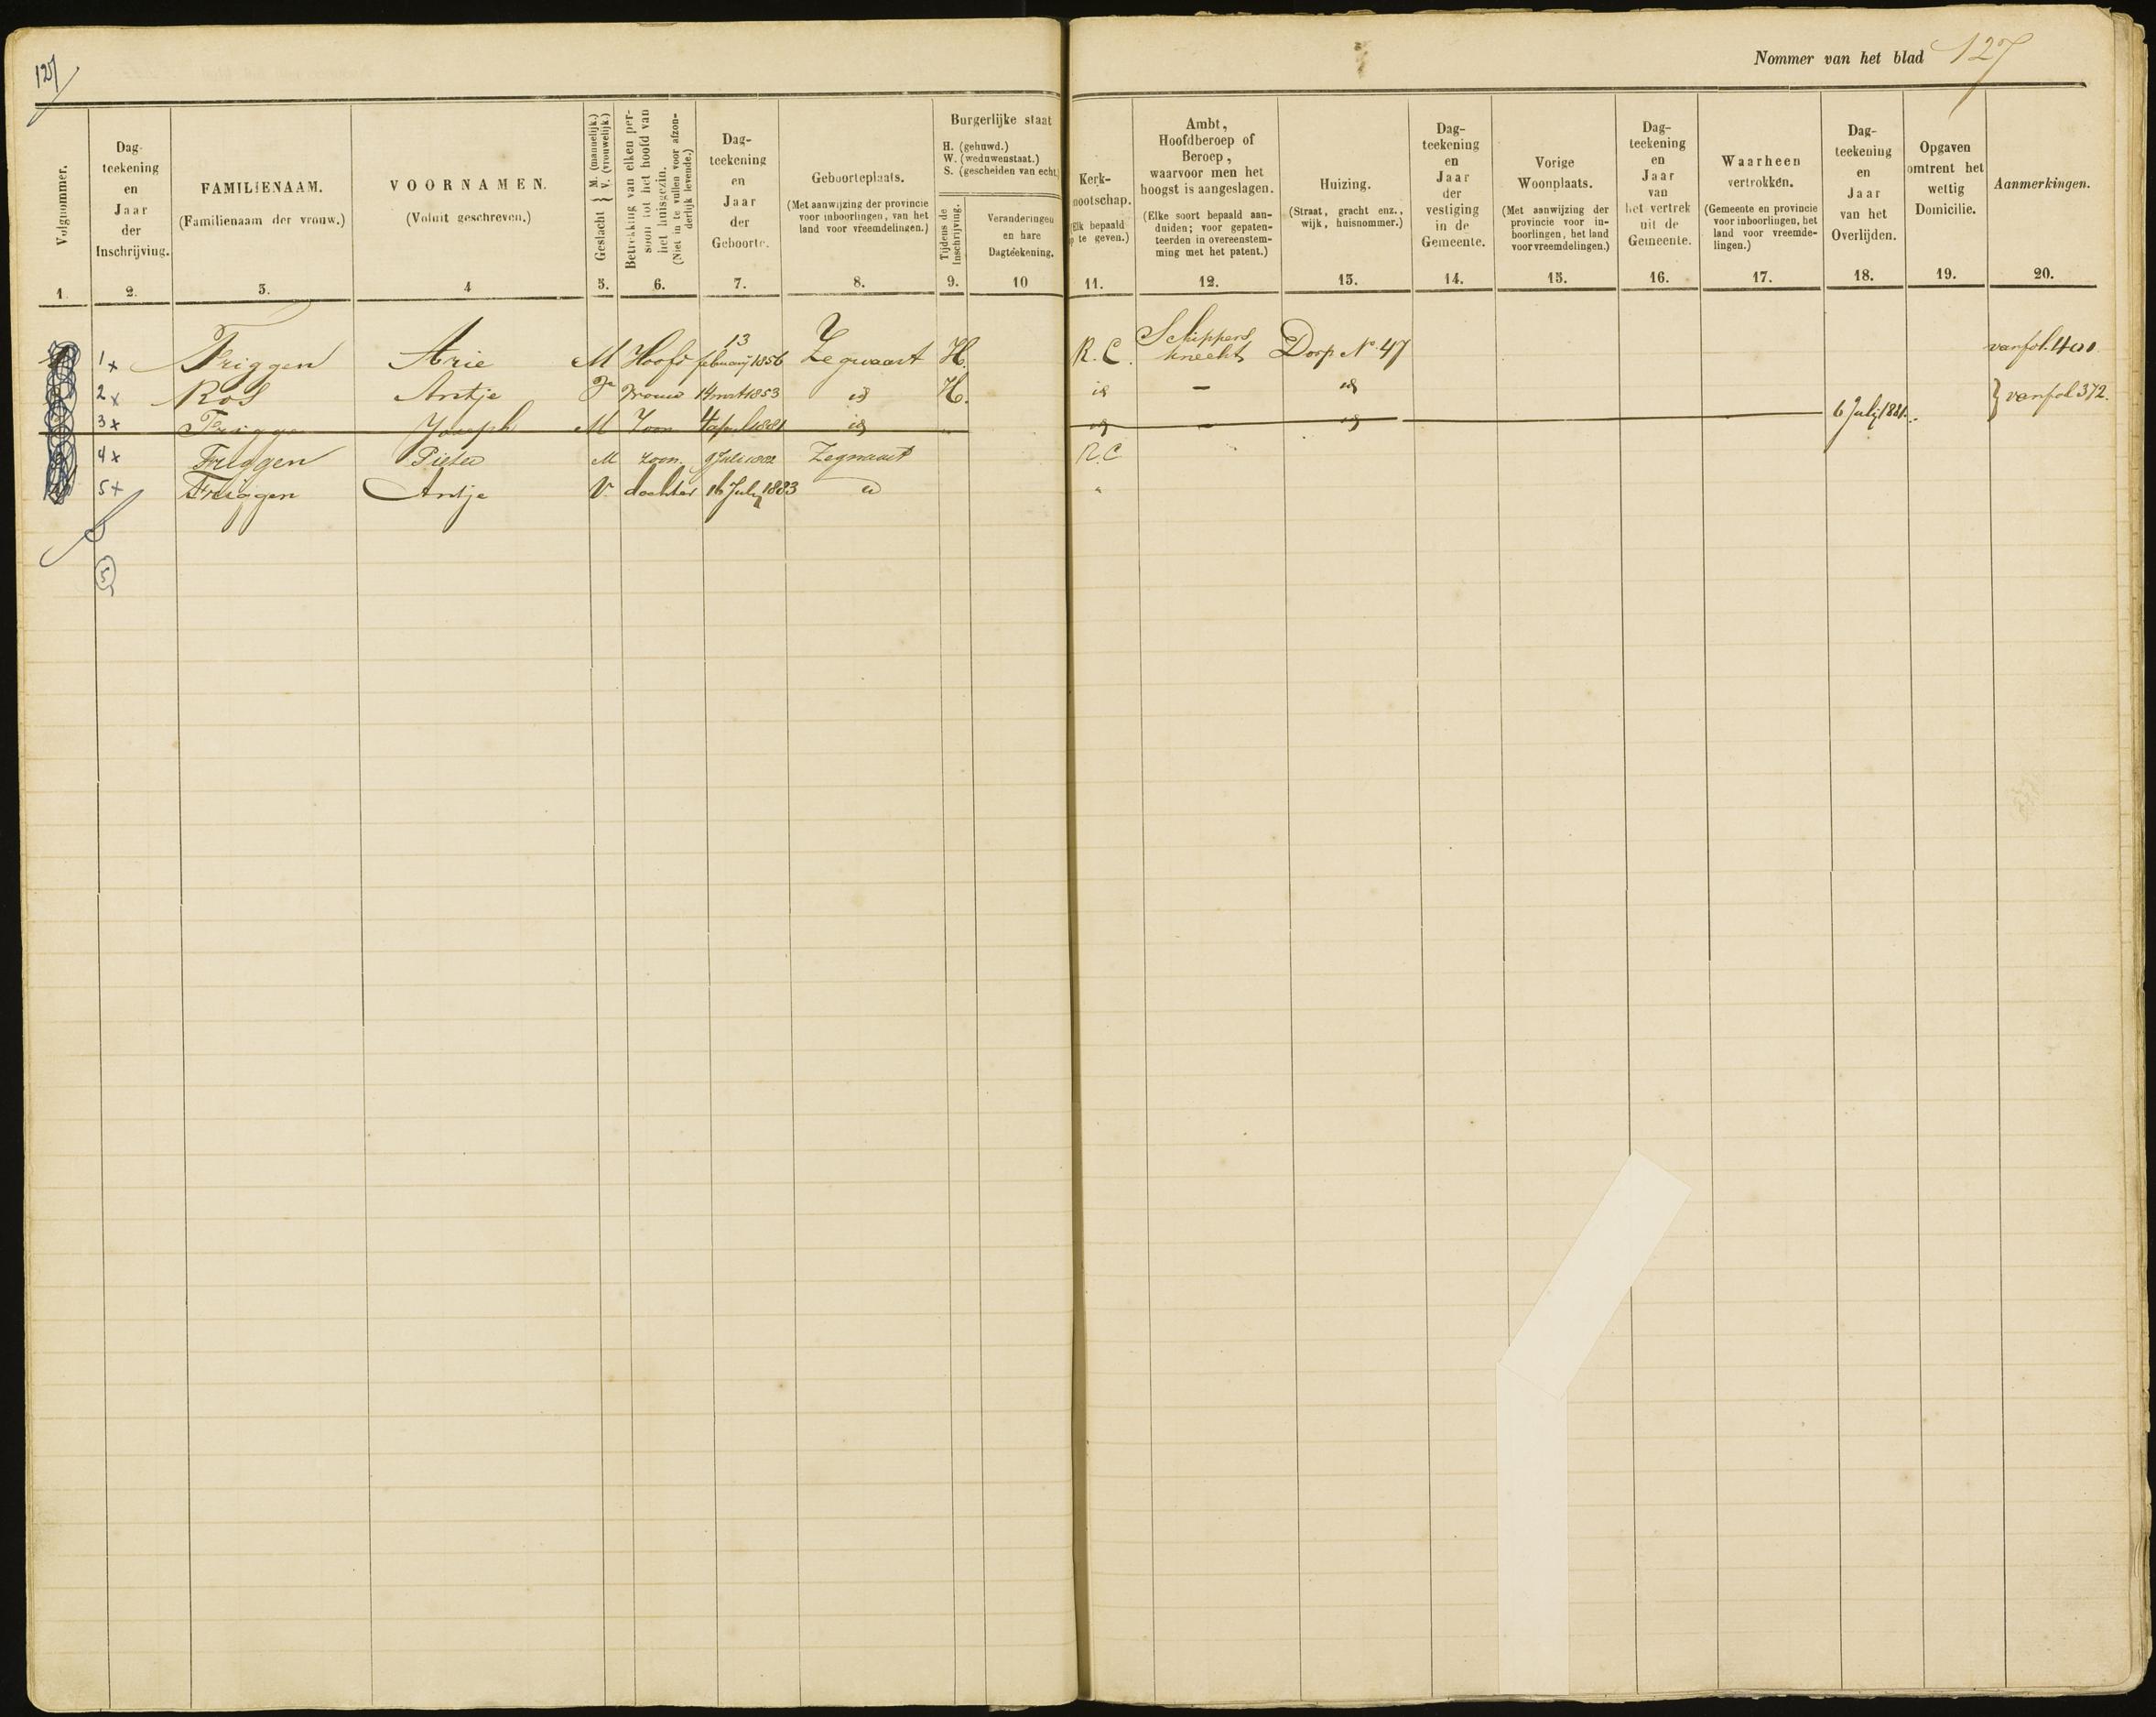 127
Nommer van het blad 127
Volgnommer.
Dag-
teekening
en
Jaar
der
Inschrijving.
FAMILIENAAM.
(Familienaam der vrouw.)
VOORNAMEN.
(Voluit geschreven.)
Geslacht } M. (mannelijk.) V. (vrouwelijk.)
Betrekking van elken per-
soon tot het hoofd van
het huisgezin.
(Niet in te vullen voor afzon-
derlijk levende.)
Dag-
teekening
en
Jaar
der
Geboorte.
Geboorteplaats.
(Met aanwijzing der provincie
voor inboorlingen, van het
land voor vreemdelingen.)
Burgerlijke staat
H. (gehuwd.)
W. (weduwenstaat.)
S. (gescheiden van echt.)
Tijdens de
Inschrijving.
Veranderingen
en hare
Dagteekening.
Kerk-
nootschap.
(Elk bepaald
op te geven.)
Ambt,
Hoofdberoep of
Beroep,
waarvoor men het
hoogst is aangeslagen.
(Elke soort bepaald aan-
duiden; voor gepaten-
teerden in overeenstem-
ming met het patent.)
Huizing.
(Straat, gracht enz.,
wijk, huisnommer.)
Dag-
teekening
en
Jaar
der
vestiging
in de
Gemeente.
Vorige
Woonplaats.
(Met aanwijzing der
provincie voor in-
boorlingen, het land
voor vreemdelingen.)
Dag-
teekening
en
Jaar
van
het vertrek
uit de
Gemeente.
Waarheen
vertrokken.
(Gemeente en provincie
voor inboorlingen, het
land voor vreemde-
lingen.)
Dag-
teekening
en
Jaar
van het
Overlijden.
Opgaven
omtrent het
wettig
Domicilie.
Aanmerkingen.
1. 2. 3. 4 5. 6. 7. 8. 9. 10 11. 12. 13. 14. 15. 16. 17. 18. 19. 20.
1x Friggen Arie M Hoofd 13 februarij 1856 Zegwaart H. R.C. Schippers knecht Dorp No 47 van fol. 401
2x Ros Antje Vrouw 14 1853 id H. id - id } van fol 372.
3x Frigge Joseph M Zoon 4 april 1881 id id - id 6 July 1881.
4x Friggen Pieter M zoon. 9 Juli 1882 Zegwaart R.C
5x Friggen Antje V. dochter 16 July 1883 id "
5